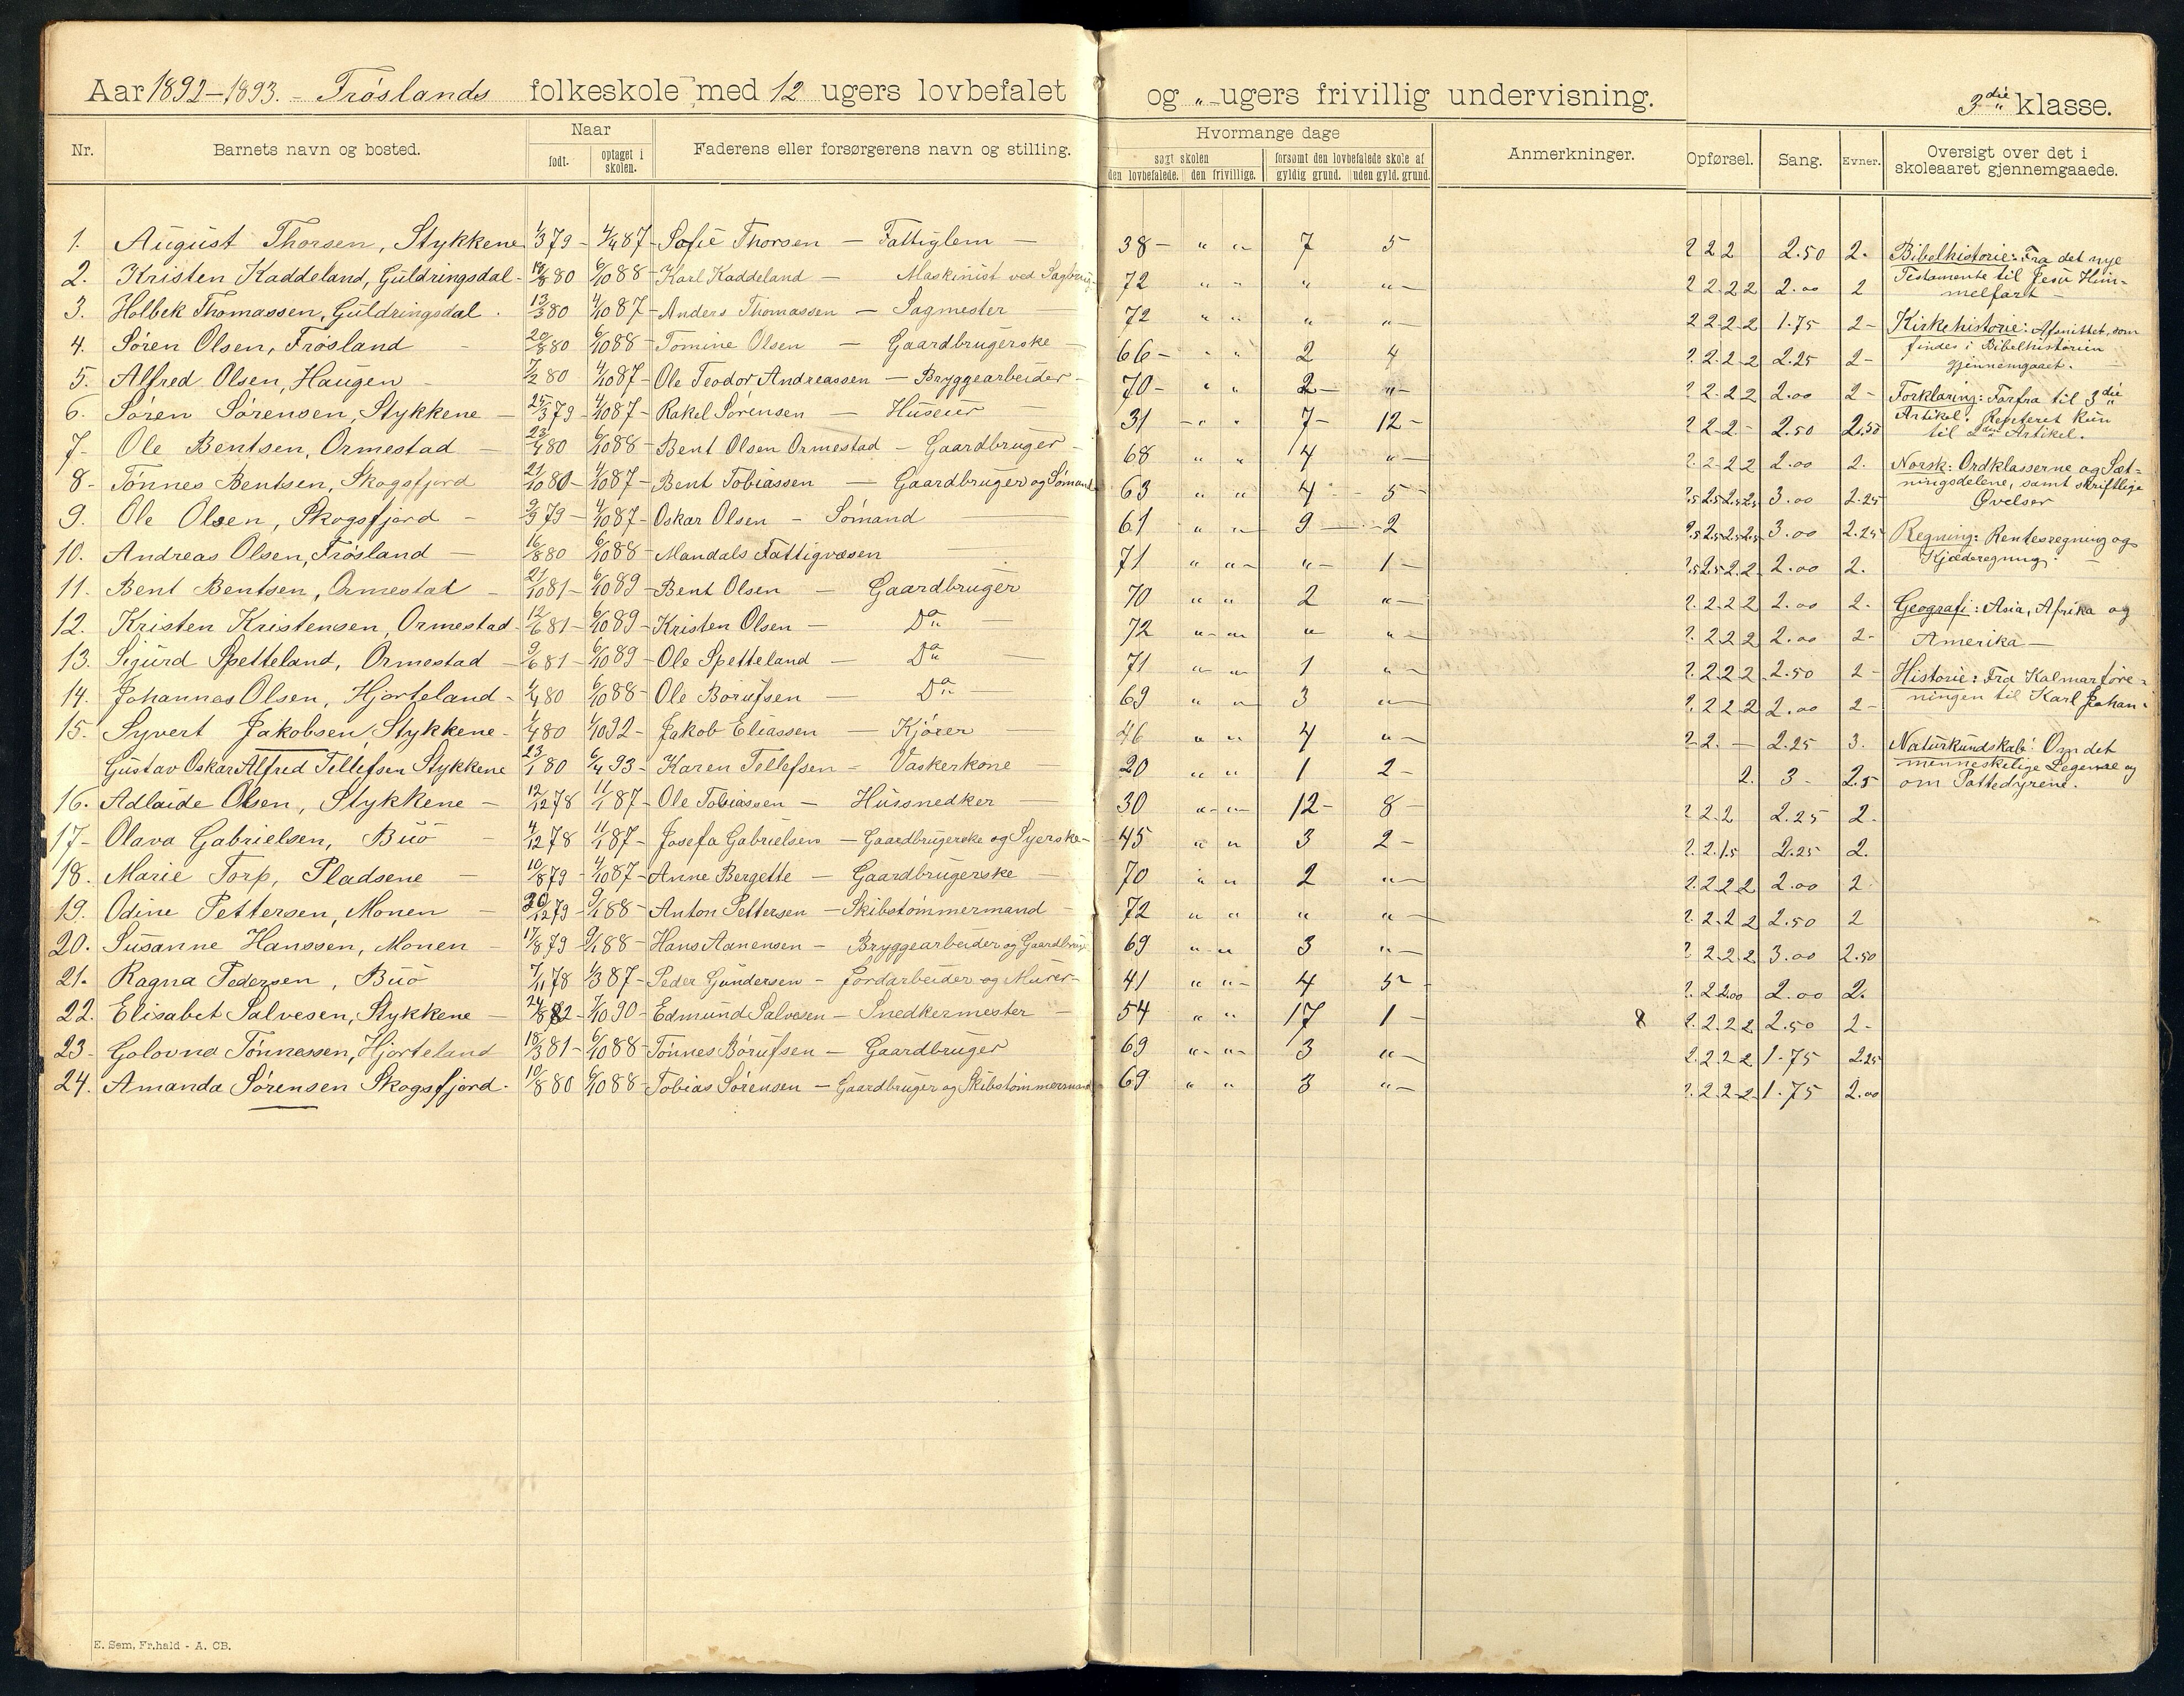 Aar 1892-1893. - Frøslands folkeskole med 12 ugers lovbefalet og " ugers frivillig undervisning. 3die klasse.
Nr. Barnets navn og bosted. Naar født. optaget i skolen. Faderens eller forsørgerens navn og stilling. Hvormange dage søgt skolen den lovbefalede. den frivillige. forsømt den lovbefalede skole af gyldig grund. uden gyld. grund. Anmerkninger. Opførsel. Sang. Evner. Oversigt over det i skoleaaret gjennemgaaede.
1. August Thorsen, Stykkene 1/3 79 - 4/4 87 - Sofie Thorsen - Fattiglem - 38 - " " 7 5 - 2 2 2 2.50 2.
2. Kristen Kaddeland, Guldringsdal - 18/8 80 6/10 88 - Karl Kaddeland - Maskinist ved Sagbrug 72 " " " " - 2 2 2 2 2.00 2
3. Holbek Thomassen, Guldringsdal - 13/3 80 4/10 87 - Anders Thomassen - Sagmester 72 " " " " - 2 2 2 2 1.75 2 -
4. Søren Olsen, Frøsland - 20/8 80 6/10 88 - Tomine Olsen - Gaardbrugerske - 66 - " " 2 4 2 2 2 2 2.25 2 -
5. Alfred Olsen, Haugen - 7/2 80 4/10 87 - Ole Teodor Andreassen - Bryggearbeider - 70 - " " 2 - " - 2 2 2 2 2.00 2 -
6. Søren Sørensen, Stykkene - 25/3 79 - 4/10 87 - Rakel Sørensen - Huseier - 31 - " " 7 - 12 - 2 2 2 - 2.50 2.50
7 - Ole Bentsen, Ormestad - 23/4 80 6/10 88 - Bent Olsen Ormestad - Gaardbruger - 68 " " 4 " - 2 2 2 2 2.00 2.
8 - Tønnes Bentsen, Skogsfjord 21/10 80 - 4/10 87 - Bent Tobiassen - Gaardbruger og Sømand 63 " " 4 - 5 - 2.5 2.5 2.5 3.00 2.25
9. Ole Olsen, Skogsfjord - 9/9 79 - 4/10 87 - Oskar Olsen - Sømand 61 " " 9 - 2 2.5 2.5 2.5 3.00 2.25
10. Andreas Olsen, Frøsland - 16/8 80 6/10 88 - Mandals Fattigvæsen 71 " " " - 1 - 2.5 2.5 2.2 2.00 2.
11. Bent Bentsen, Ormestad - 21/10 81 - 6/10 89 - Bent Olsen - Gaardbruger 70 " " 2 " - 2 2 2 2 2.00 2 -
12. Kristen Kristensen, Ormestad - 12/6 81 - 6/10 89 - Kristen Olsen - Do - 72 " " " " - 2 2 2 2 2.00 2 -
13. Sigurd Spetteland, Ormestad - 9/6 81 - 6/10 89 - Ole Spetteland - Do - 71 " " 1 " - 2 2 2 2 2.50 2 -
14. Johannes Olsen, Hjorteland - 1/4 80 6/10 88 - Ole Børufsen - Do - 69 " " 3 " - 2 2 2 2 2.00 2 -
15. Syvert Jakobsen, Stykkene - 1/4 80 4/10 92 - Jakob Eliassen - Kjører - 46 " " 4 " - 2 2 - 2.25 3.
Gustav Oskar Alfred Tellefsen Stykkene 23/1 80 6/4 93 - Karen Tellefsen - Vaskerkone - 20 " " 1 2 - 2. 3 - 2.5
16. Adlaide Olsen, Stykkene - 12/12 78 11/1 87 - Ole Tobiassen - Hussnedker - 30 " " 12 - 8 - 2 2 2 2.25 2 -
17 - Olava Gabrielsen, Buø - 4/12 78 11/1 87 - Josefa Gabrielsen - Gaardbrugerske og Syerske - 45 " " 3 2 - 2 2 1.5 2.25 2.
18. Marie Torp, Pladsene - 10/8 79 - 4/10 87 - Anne Bergette - Gaardbrugerske - 70 " " 2 " - 2 2 2 2 2.00 2
19. Odine Pettersen, Monen - 30/12 79 - 9/1 88 - Anton Pettersen - Skibstømmermand - 72 " " " " - 2 2 2 2 2.50 2
20. Susanne Hanssen, Monen - 17/8 79 - 9/1 88 - Hans Aanensen - Bryggearbeider og Gaardbrug 69 " " 3 " - 2 2 2 2 3.00 2.50
21. Ragna Pedersen, Buø 7/11 78 1/3 87 - Peder Gundersen - Jordarbeider og Murer - 41 " " 4 5 - 2 2 2.00 2.00 2.
22. Elisabet Salvesen, Stykkene - 24/8 82 - 7/10 90 - Edmund Salvesen - Snedkermester - 54 " " 17 1 - 8 2 2 2 2 2.50 2 -
23 - Golovna Tønnessen, Hjorteland 18/3 81 - 6/10 88 - Tønnes Børufsen - Gaardbruger 69 " " 3 " - 2 2 2 2 1.75 2.25
24. Amanda Sørensen Skogsfjord - 10/8 80 6/10 88 - Tobias Sørensen - Gaardbruger og Skibstømmermand 69 " " 3 " - 2 2 2 2 1.75 2.00
Bibelhistorie: Fra det nye
Testamente til Jesu Him-
melfart -
Kirkehistorie: Afsnittet, som
findes i Bibelhistorien
gjennemgaaet.
Forklaring: Forfra til 3die
Artikel. Repeteret kun
til 2den Artikel.
Norsk: Ordklasserne og Sæt-
ningsdelene, samt skriftlige
Øvelser
Regning: Rentesregning og
Kjæderegning.
Geografi: Asia, Afrika og
Amerika -
Historie: Fra Kalmarfore-
ningen til Karl Johan.
Naturkundskab: Om det
menneskelige Legeme og
om Pattedyrene.
E. Sem, Fr.hald - A. CB.